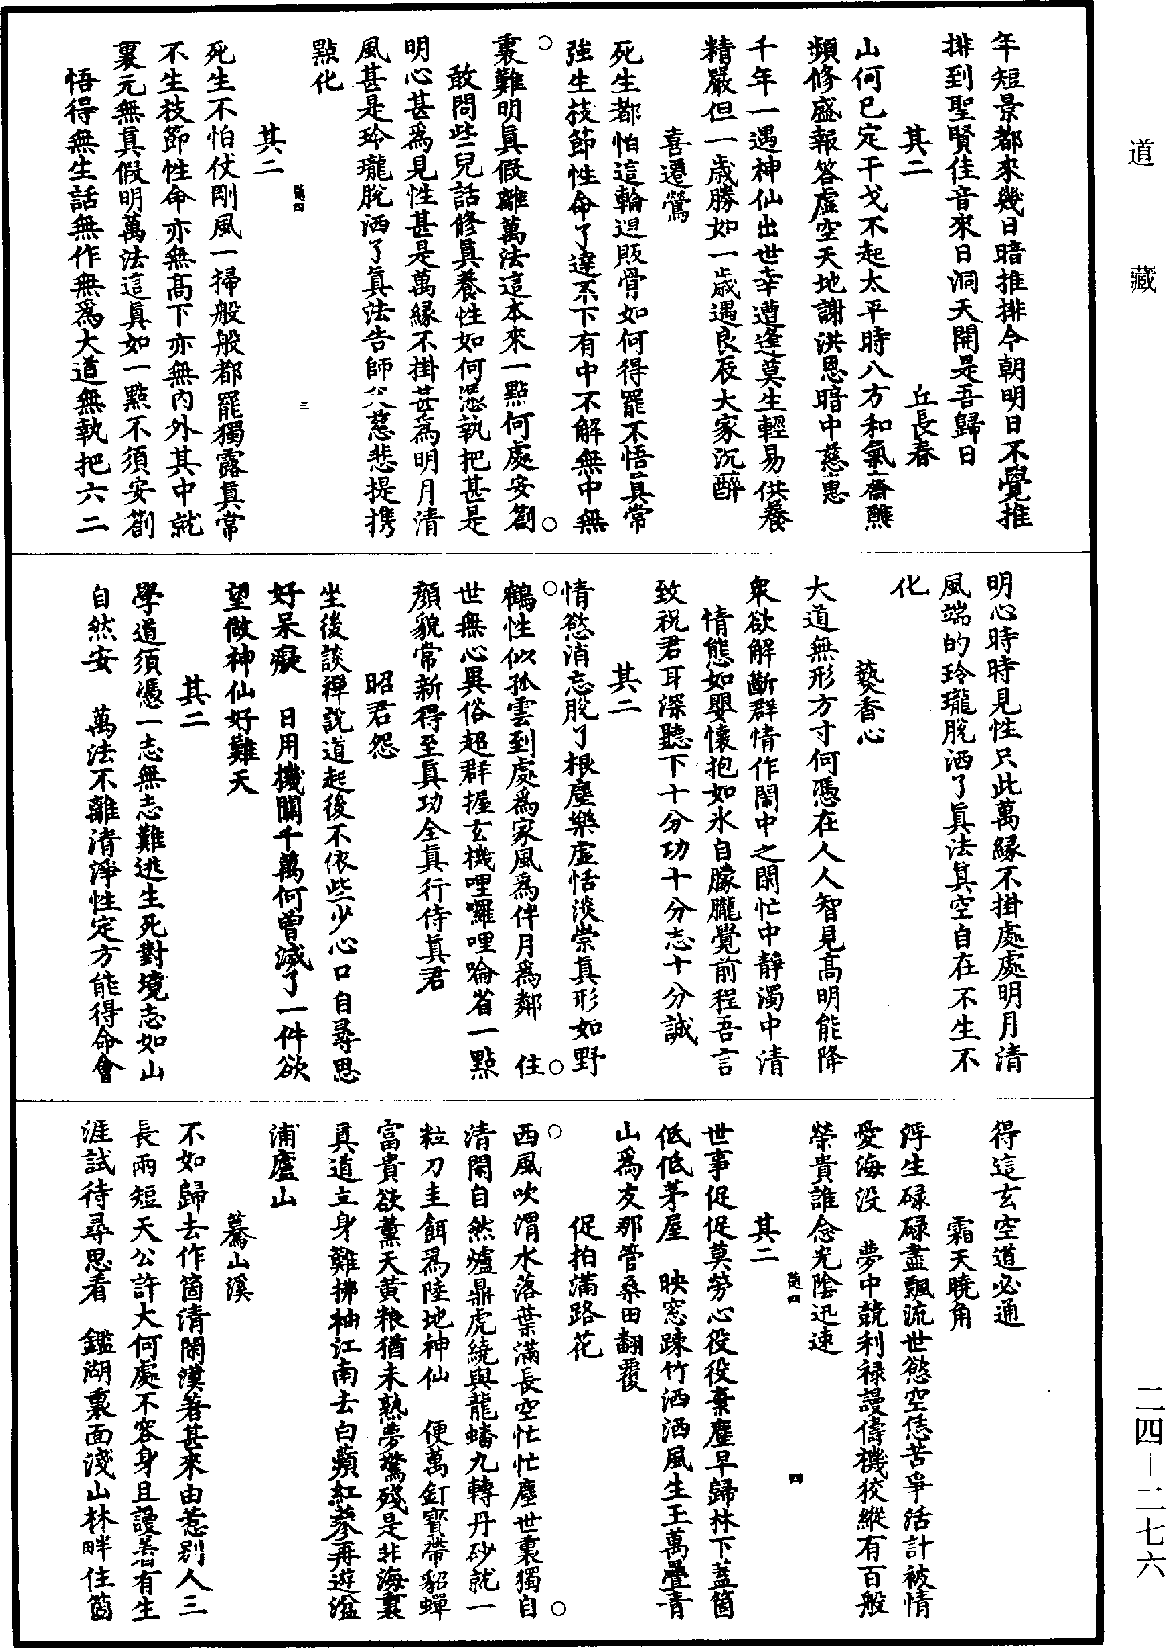 道藏
年短景都來幾日暗推排今朝明日不覺推
排到聖賢佳音來日洞天開是吾歸日
其二　丘長春
山何已定干戈不起太平時八方和氣齋醮
頻修盛報答虛空天地謝洪恩暗中慈惠
千年一遇神仙出世幸遭逢莫生輕易供養
精嚴但一歲勝如一歲遇良辰大家沉醉
喜遷鶯
死生都怕這輪迴販骨如何得罷不悟真常
強生技節性命了達不下有中不解無中無
裏難明真假離萬法這本來一點何處安劄
敢問些兒話修真養性如何憑執把甚是
明心甚爲見性甚是萬緣不掛甚爲明月清
風甚是玲瓏脫洒了真法告師父慈悲提携
點化
其二
死生不怕仗剛風一掃般般都罷獨露真常
不生技節性命亦無高下亦無內外其中就
裏元無真假明萬法這真如一點不須安劄
悟得無生話無作無爲大道無執把六二
明心時時見性只此萬緣不掛處處明月清
風端的玲瓏脫洒了真法真空自在不生不
化
爇香心
大道無形方寸何憑在人人智見高明能降
衆欲解斷群情作閙中之閑忙中靜濁中清
情態如嬰懷抱如氷自朦朧覺前程吾言
致祝君耳深聽下十分功十分志十分誠
其二
情慾消忘脫了根塵樂虛恬淡崇真形如野
鶴性似孤雲到處爲家風爲伴月爲鄰　住
世無心異俗超群握玄機哩囉哩唥省一點
顏貌常新得至真功全真行侍真君
昭君怨
坐後談禪說道起後不依些少心口自尋思
好呆癡　日用機關千萬何曾減了一件欲
望做神仙好難天
其二
學道須憑一志無志難逃生死對境志如山
自然安　萬法不離清淨性定方能得命會
得這玄空道必通
霜天曉角
浮生碌碌盡飄流世慾空恁苦爭活計被情
愛海没　夢中競利祿謾儔機狡縱有百般
榮貴誰念光陰迅速
其二
世事促促莫勞心役役棄塵早歸林下蓋箇
低低茅屋　映窓踈竹洒洒風生玉萬疊青
山爲友那管桑田翻覆
促拍滿路花
西風吹渭水落葉滿長空忙忙塵世裏獨自
清閑自然爐鼎虎繞與龍蟠九轉丹砂就一
粒刀圭餌爲陸地神仙　便萬釘寶帶貂蟬
富貴欲薰天黄粮猶未熟夢驚殘是非海裏
真道立身難拂柚江南去白蘋紅蓼再遊湓
浦廬山
驀山溪
不如歸去作箇清閑漢著甚來由惹别人三
長兩短天公許大何處不容身且謾着有生
涯試待尋思看　鑑湖裏面淺山林畔住箇
二四—二七六